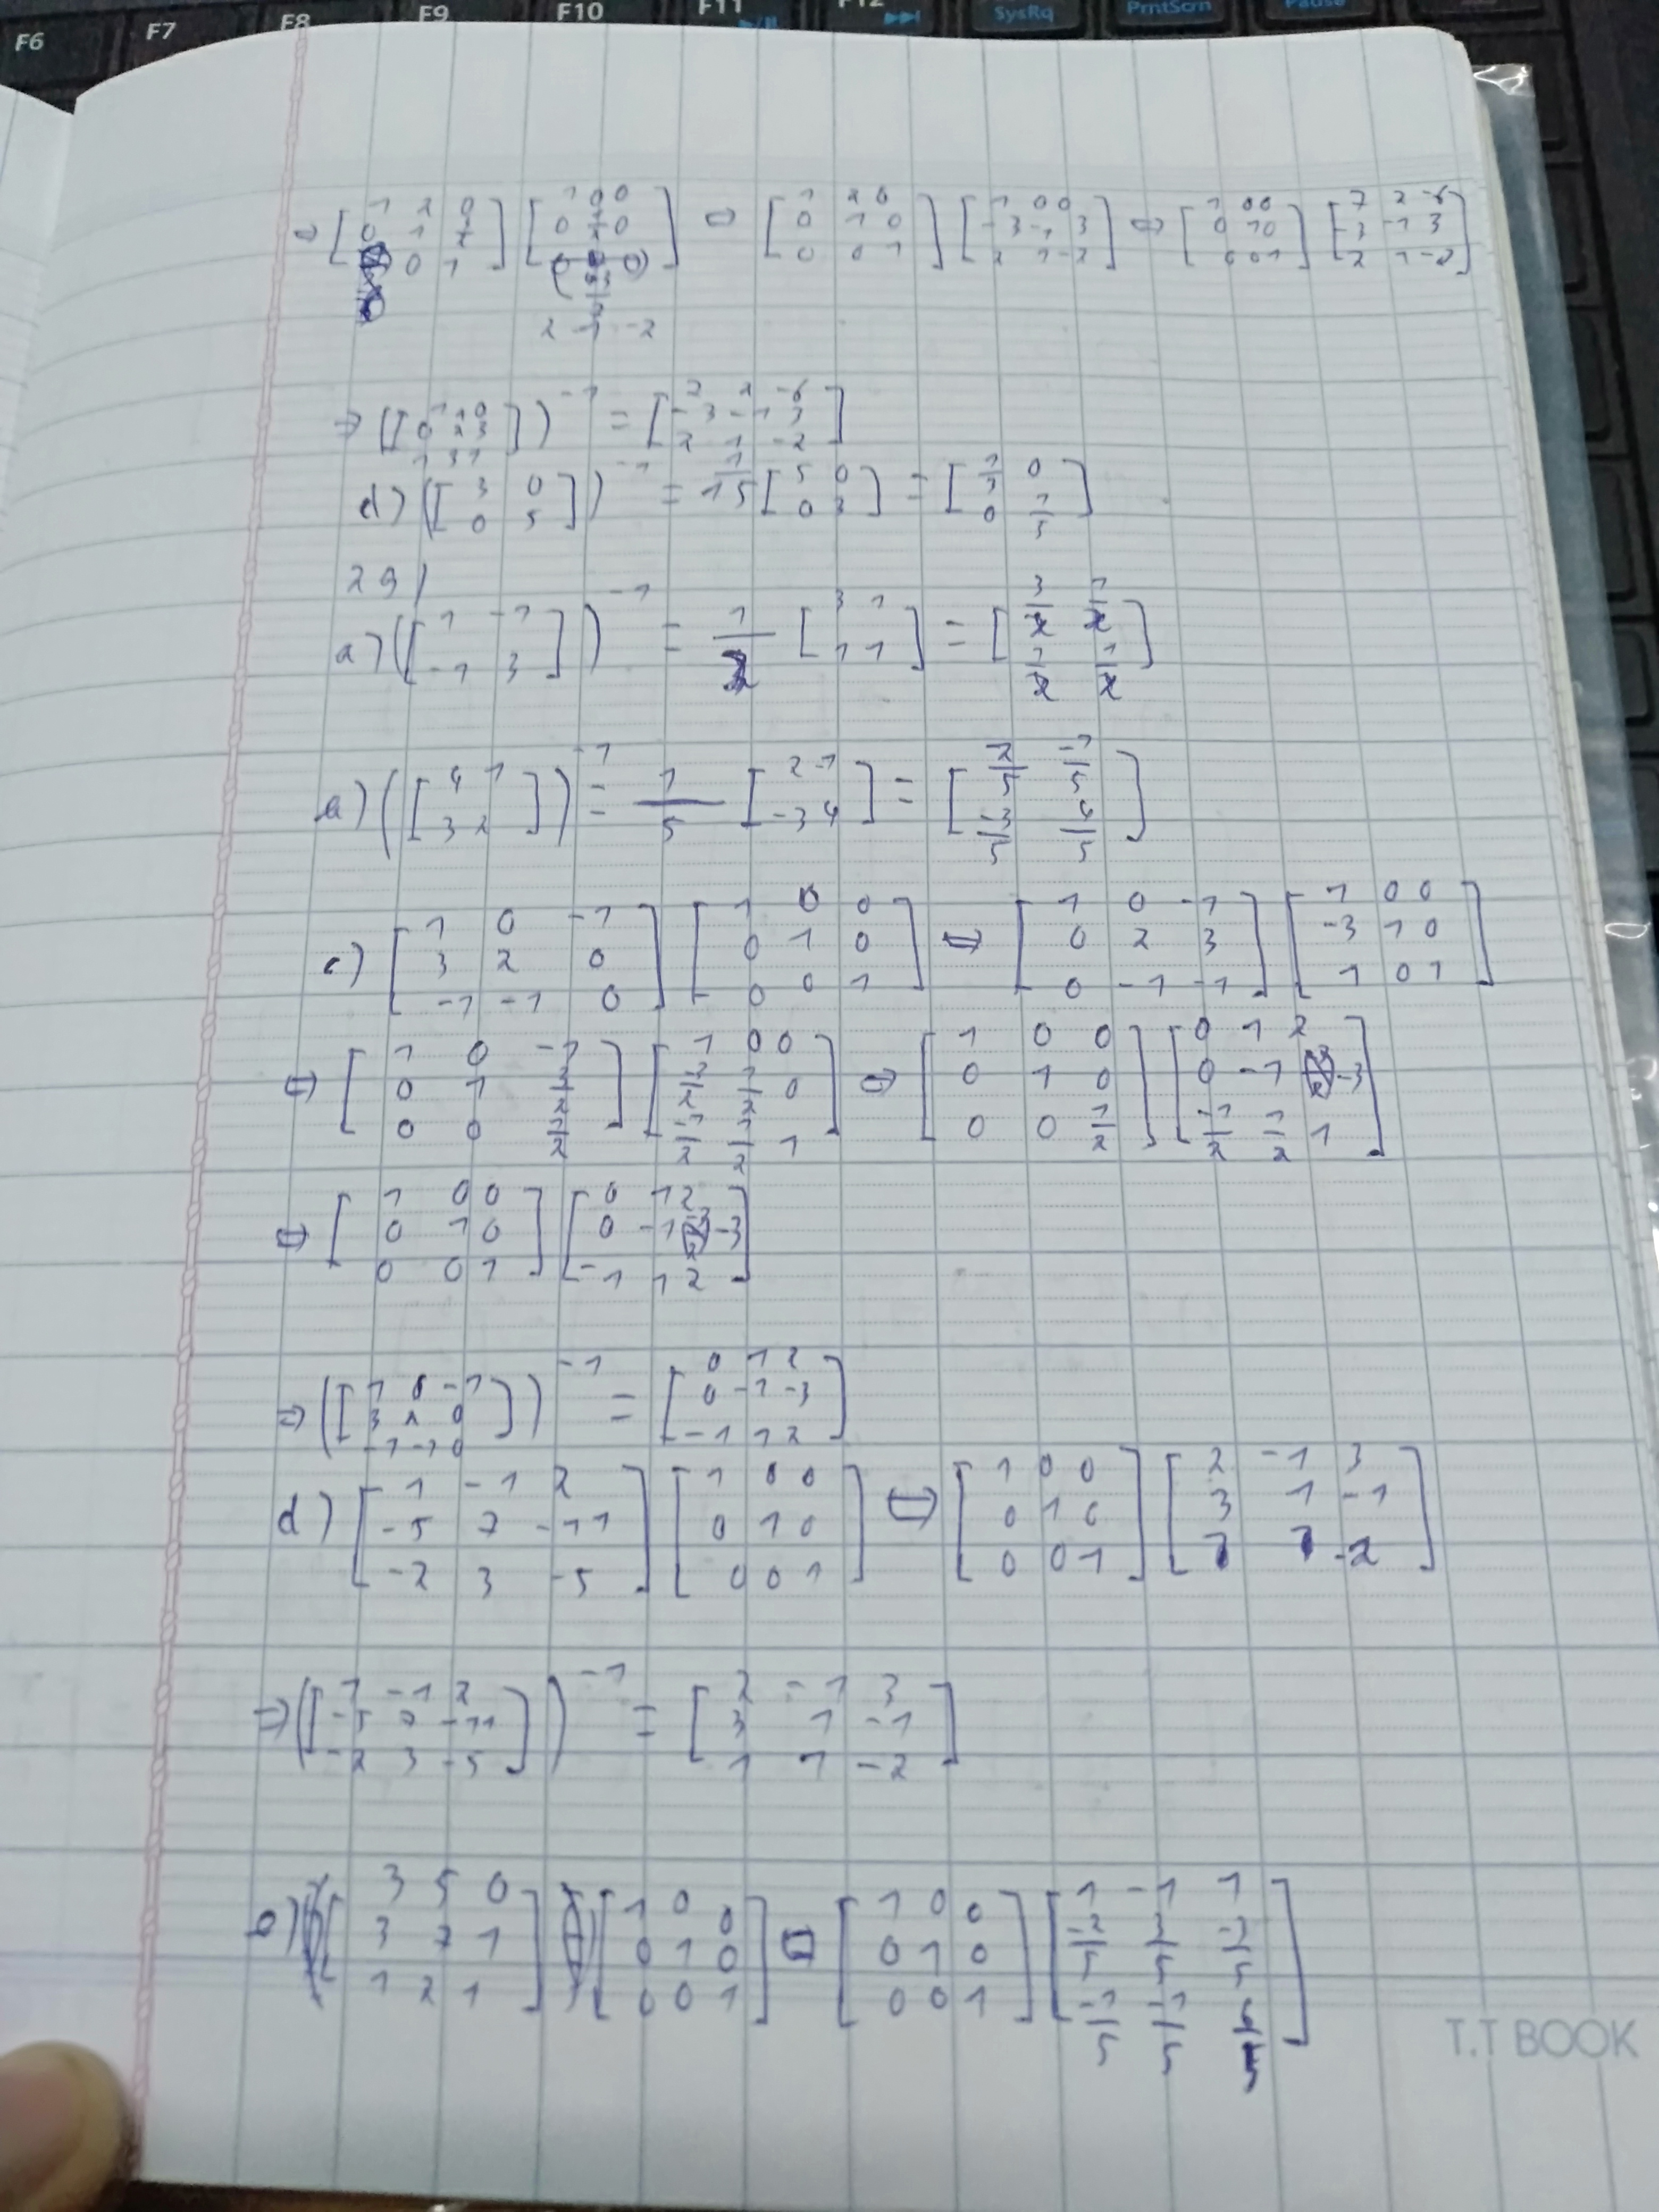 F6 F7 F8 F9 F10 F11 F12 SysRq PrntScrn Pause
⇒ [1 2 0; 0 1; 0 1] [1 0 0; 0 0; 2 -2] ⇔ [1 2 0; 0 1 0; 0 0 1] [1 0 0; -3 -1 3; 2 1 -2] ⇔ [1 0 0; 0 1 0; 0 0 1] [7 2 -6; -3 -1 3; 2 1 -2]
⇒ ([1 2 0; 0 2 3; 1 3 1])^-1 = [7 2 -6; -3 -1 3; 2 1 -2]
d) ([3 0; 0 5])^-1 = 1/15 [5 0; 0 3] = [1/3 0; 0 1/5]
29)
a) ([1 -1; -1 3])^-1 = 1/2 [3 1; 1 1] = [3/2 1/2; 1/2 1/2]
b) ([4 1; 3 2])^-1 = 1/5 [2 -1; -3 4] = [2/5 -1/5; -3/5 4/5]
c) [1 0 -1; 3 2 0; -1 -1 0] [1 0 0; 0 1 0; 0 0 1] ⇔ [1 0 -1; 0 2 3; 0 -1 -1] [1 0 0; -3 1 0; 1 0 1]
⇔ [1 0 -1; 0 1 3/2; 0 0 1/2] [1 0 0; -3/2 1/2 0; -1/2 1/2 1] ⇔ [1 0 0; 0 1 0; 0 0 1/2] [0 1 2; 0 -1 -3; -1/2 1/2 1]
⇔ [1 0 0; 0 1 0; 0 0 1] [0 1 2; 0 -1 -3; -1 1 2]
⇒ ([1 0 -1; 3 2 0; -1 -1 0])^-1 = [0 1 2; 0 -1 -3; -1 1 2]
d) [1 -1 2; -5 7 -11; -2 3 -5] [1 0 0; 0 1 0; 0 0 1] ⇔ [1 0 0; 0 1 0; 0 0 1] [2 -1 3; 3 1 -1; 1 1 -2]
⇒ ([1 -1 2; -5 7 -11; -2 3 -5])^-1 = [2 -1 3; 3 1 -1; 1 1 -2]
e) [3 5 0; 3 7 1; 1 2 1] [1 0 0; 0 1 0; 0 0 1] ⇔ [1 0 0; 0 1 0; 0 0 1] [1 -1 1; -2/5 3/5 -3/5; -1/5 -1/5 6/5]
T.T BOOK